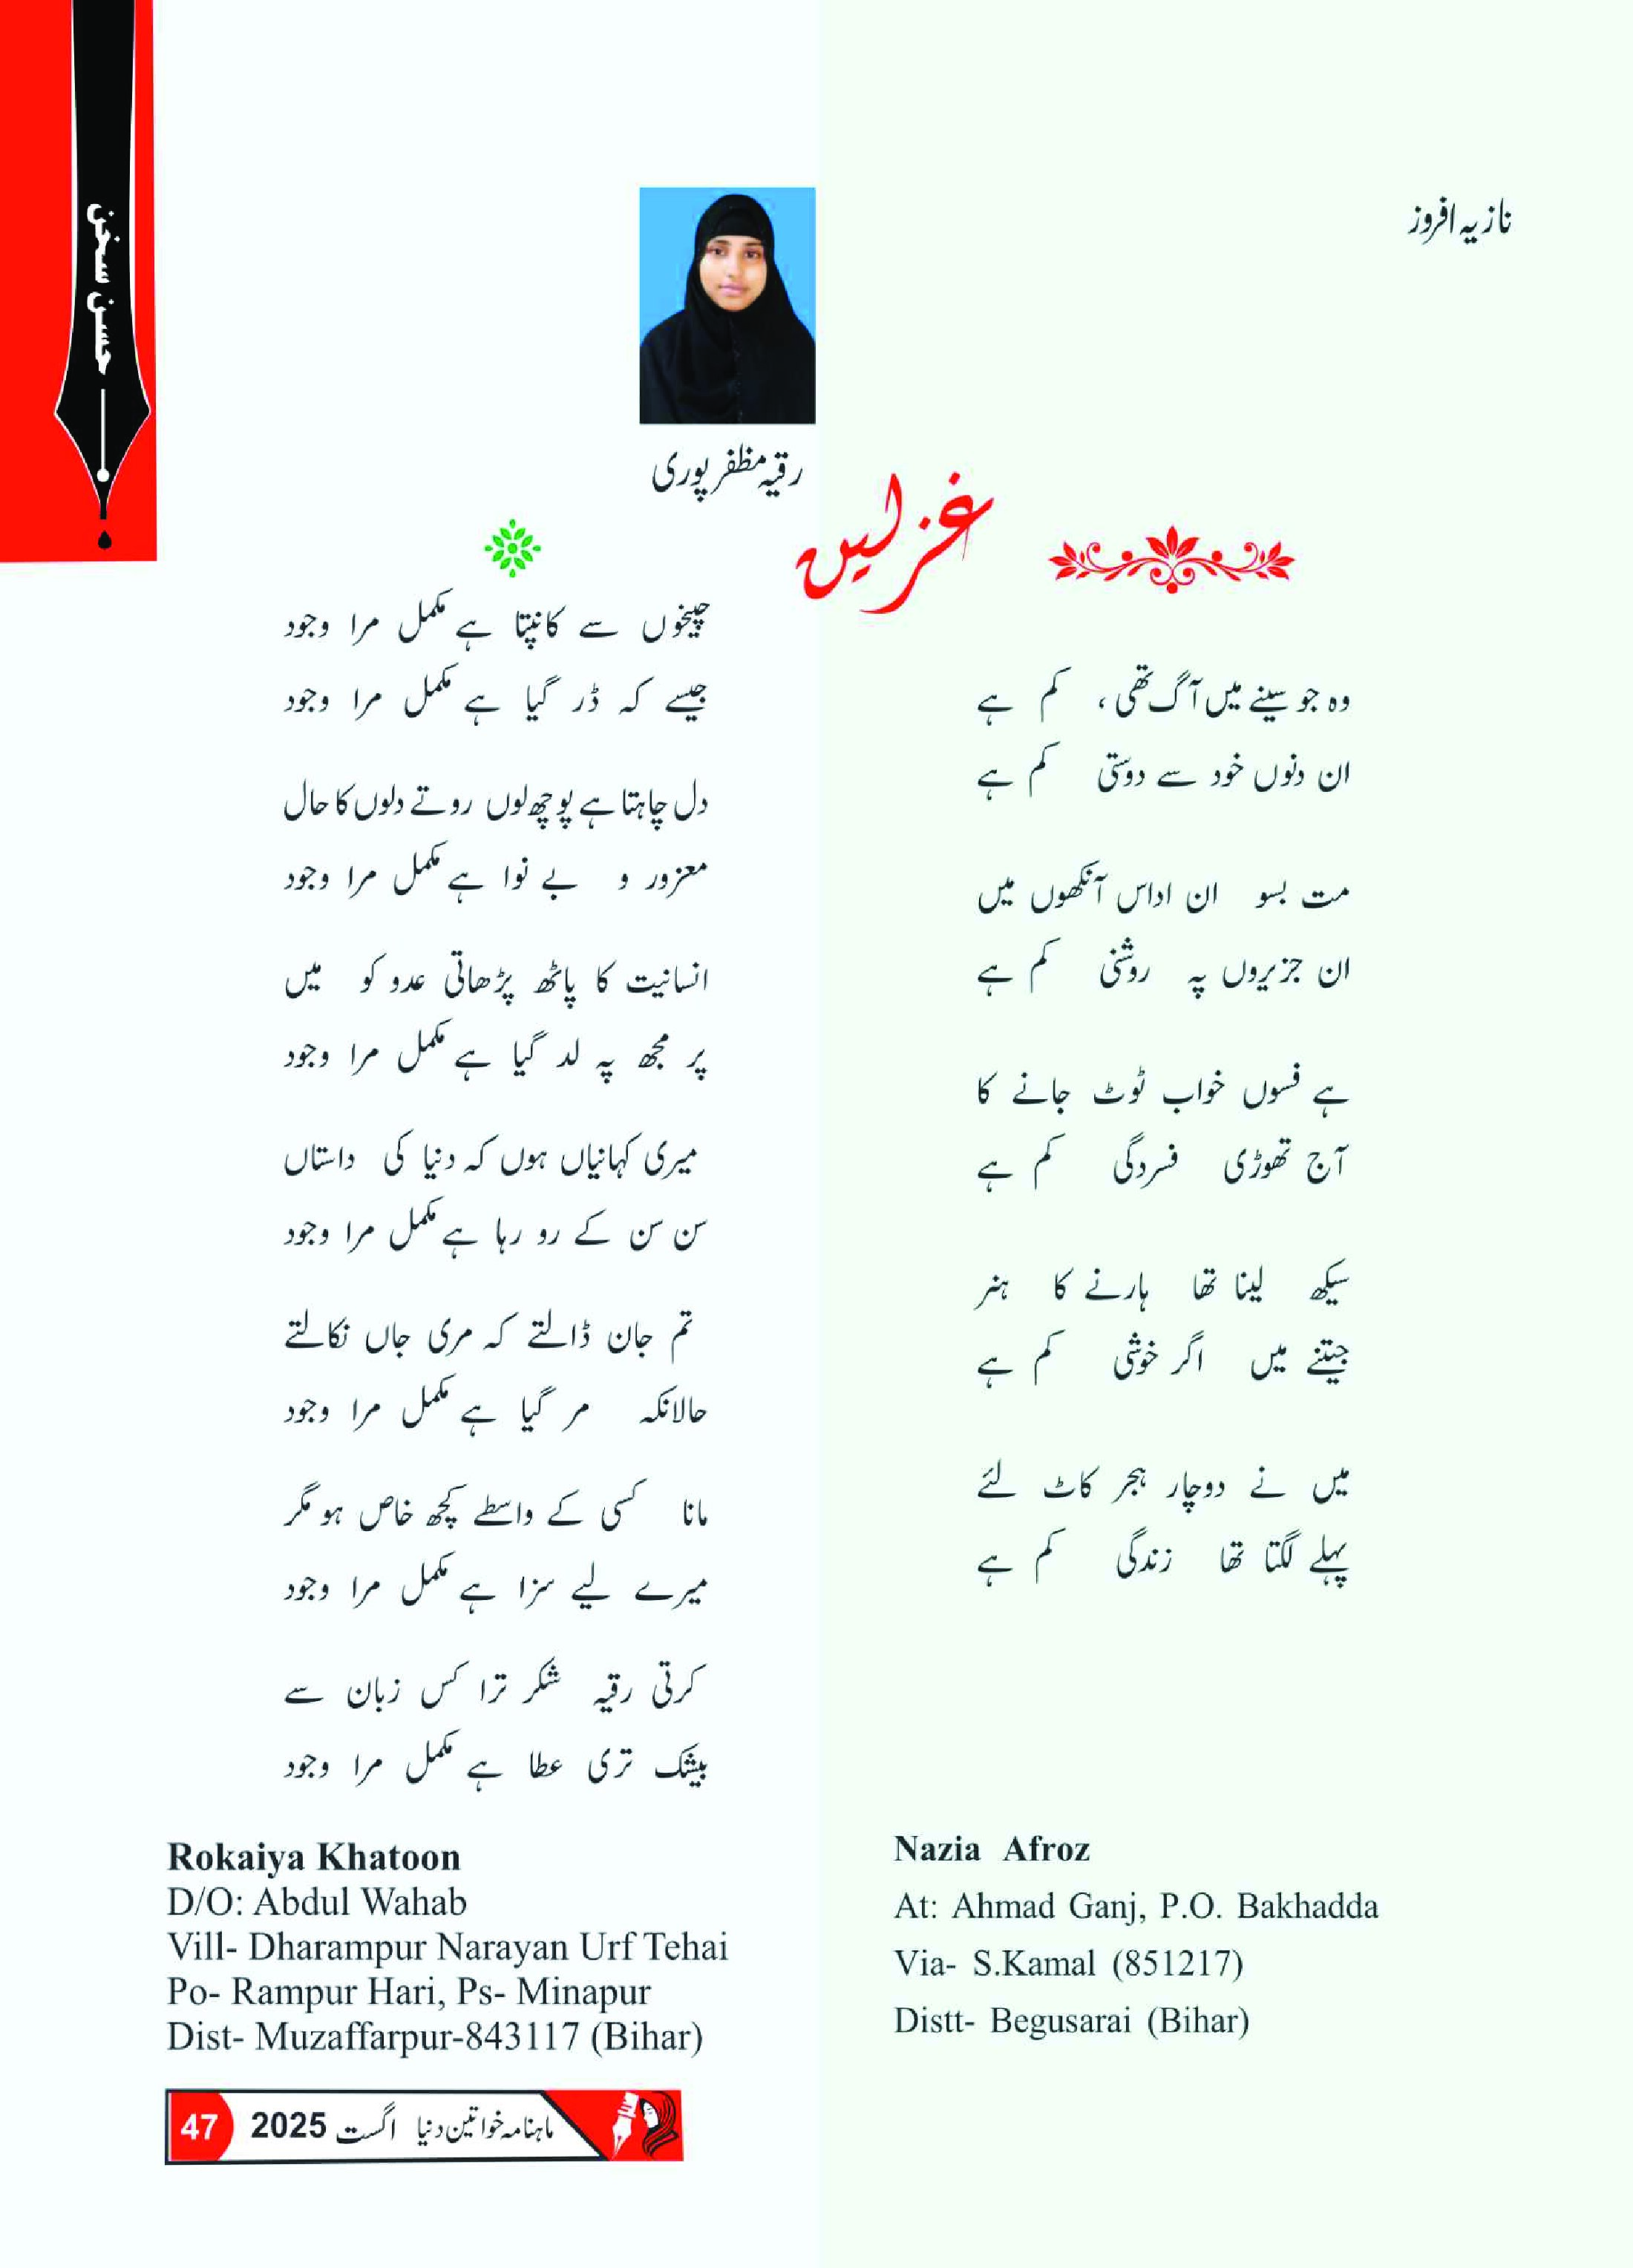 حسن سخن
نازیہ افروز
غزلیں
وہ جو سینے میں آگ تھی ، کم ہے
ان دنوں خود سے دوستی کم ہے
مت بسو ان اداس آنکھوں میں
ان جزیروں پہ روشنی کم ہے
ہے فسوں خواب ٹوٹ جانے کا
آج تھوڑی فسردگی کم ہے
سیکھ لینا تھا ہارنے کا ہنر
جیتنے میں اگر خوشی کم ہے
میں نے دوچار ہجر کاٹ لئے
پہلے لگتا تھا زندگی کم ہے
Nazia Afroz
At: Ahmad Ganj, P.O. Bakhadda
Via- S.Kamal (851217)
Distt- Begusarai (Bihar)
رقیہ مظفر پوری
چیخوں سے کانپتا ہے مکمل مرا وجود
جیسے کہ ڈر گیا ہے مکمل مرا وجود
دل چاہتا ہے پوچھ لوں روتے دلوں کا حال
معزور و بے نوا ہے مکمل مرا وجود
انسانیت کا پاٹھ پڑھاتی عدو کو میں
پر مجھ پہ لد گیا ہے مکمل مرا وجود
میری کہانیاں ہوں کہ دنیا کی داستاں
سن سن کے رو رہا ہے مکمل مرا وجود
تم جان ڈالتے کہ مری جاں نکالتے
حالانکہ مر گیا ہے مکمل مرا وجود
مانا کسی کے واسطے کچھ خاص ہو مگر
میرے لیے سزا ہے مکمل مرا وجود
کرتی رقیہ شکر ترا کس زبان سے
بیشک تری عطا ہے مکمل مرا وجود
Rokaiya Khatoon
D/O: Abdul Wahab
Vill- Dharampur Narayan Urf Tehai
Po- Rampur Hari, Ps- Minapur
Dist- Muzaffarpur-843117 (Bihar)
ماہنامہ خواتین دنیا اگست 2025 47